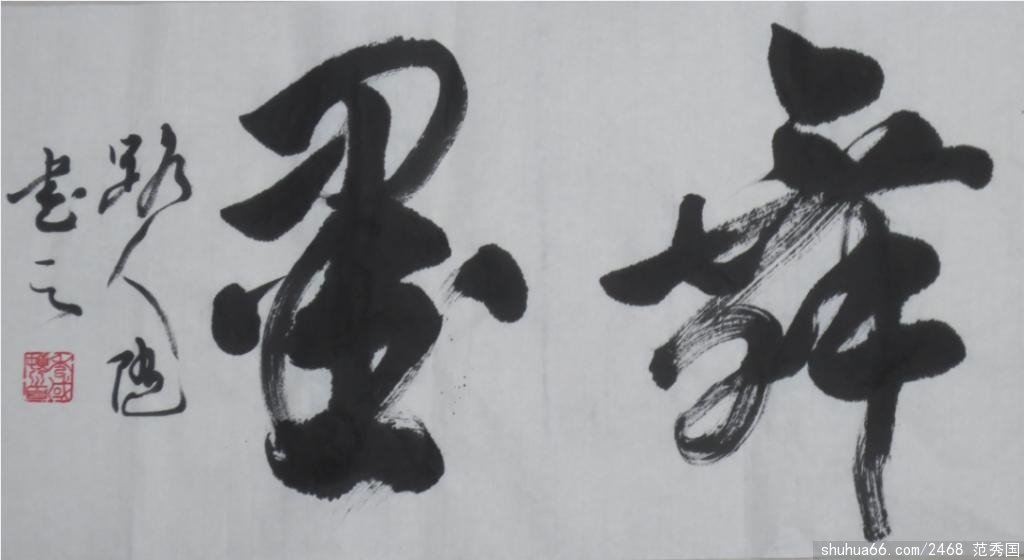 舞墨
路人随
书之
shuhua66.com/2468 范秀国